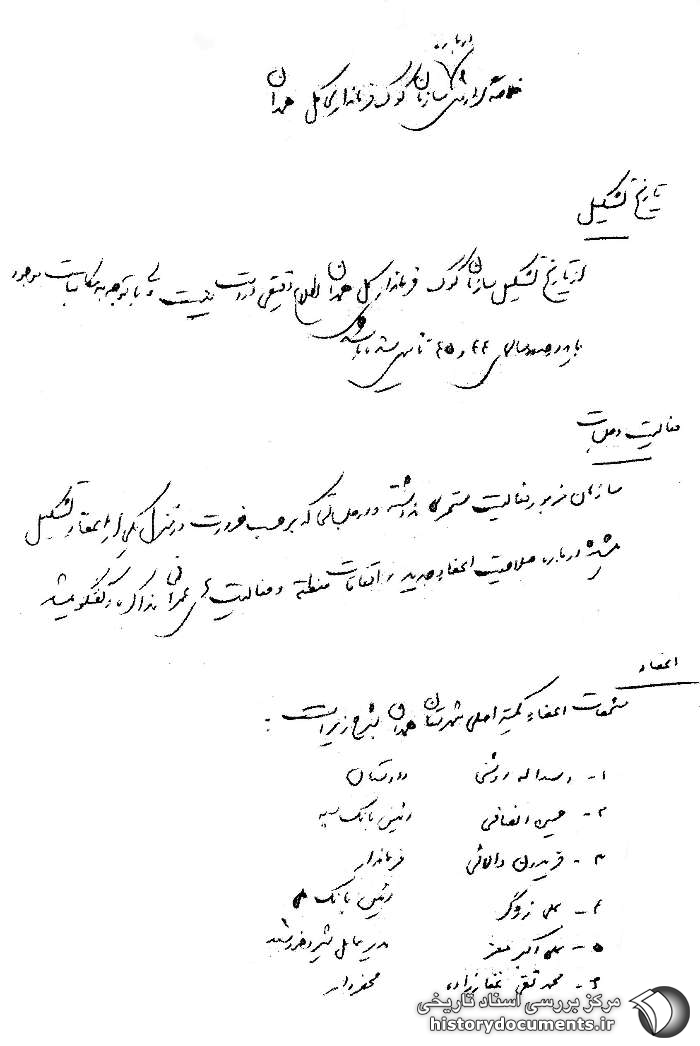 درباره
خلاصه گزارشی سازمان کوک فرمانداریکل همدان
تاریخ تشکیل
از تاریخ تشکیل سازمان کوک فرمانداریکل همدان اطلاع دقیقی در دست نیست ولی با توجه به مکاتبات موجود
باید در حدود سالهای ۴۴ و ۴۵ تأسیس شده باشد
فعالیت و جلسات
سازمان مزبور فعالیت مستمری نداشته و در جلساتی که بر حسب ضرورت در منزل یکی از اعضاء تشکیل
میشد درباره صلاحیت اعضاء جدید و اتفاقات منطقه و فعالیت های عمرانی مذاکره و گفتگو میشد
اعضاء
مشخصات اعضاء کمیته اصلی شهرستان همدان بشرح زیر است :
۱- اسداله روشنی دادستان
۲- حسین انصافی رئیس بانک سپه
۳- فریدون والائی فرماندار
۴- علی زرگر رئیس بانک
۵- علی اکبر مدیر عامل شیر و خورشید
۶- محمد تقی غفارزاده محضردار
مرکز بررسی اسناد تاریخی
historydocuments.ir